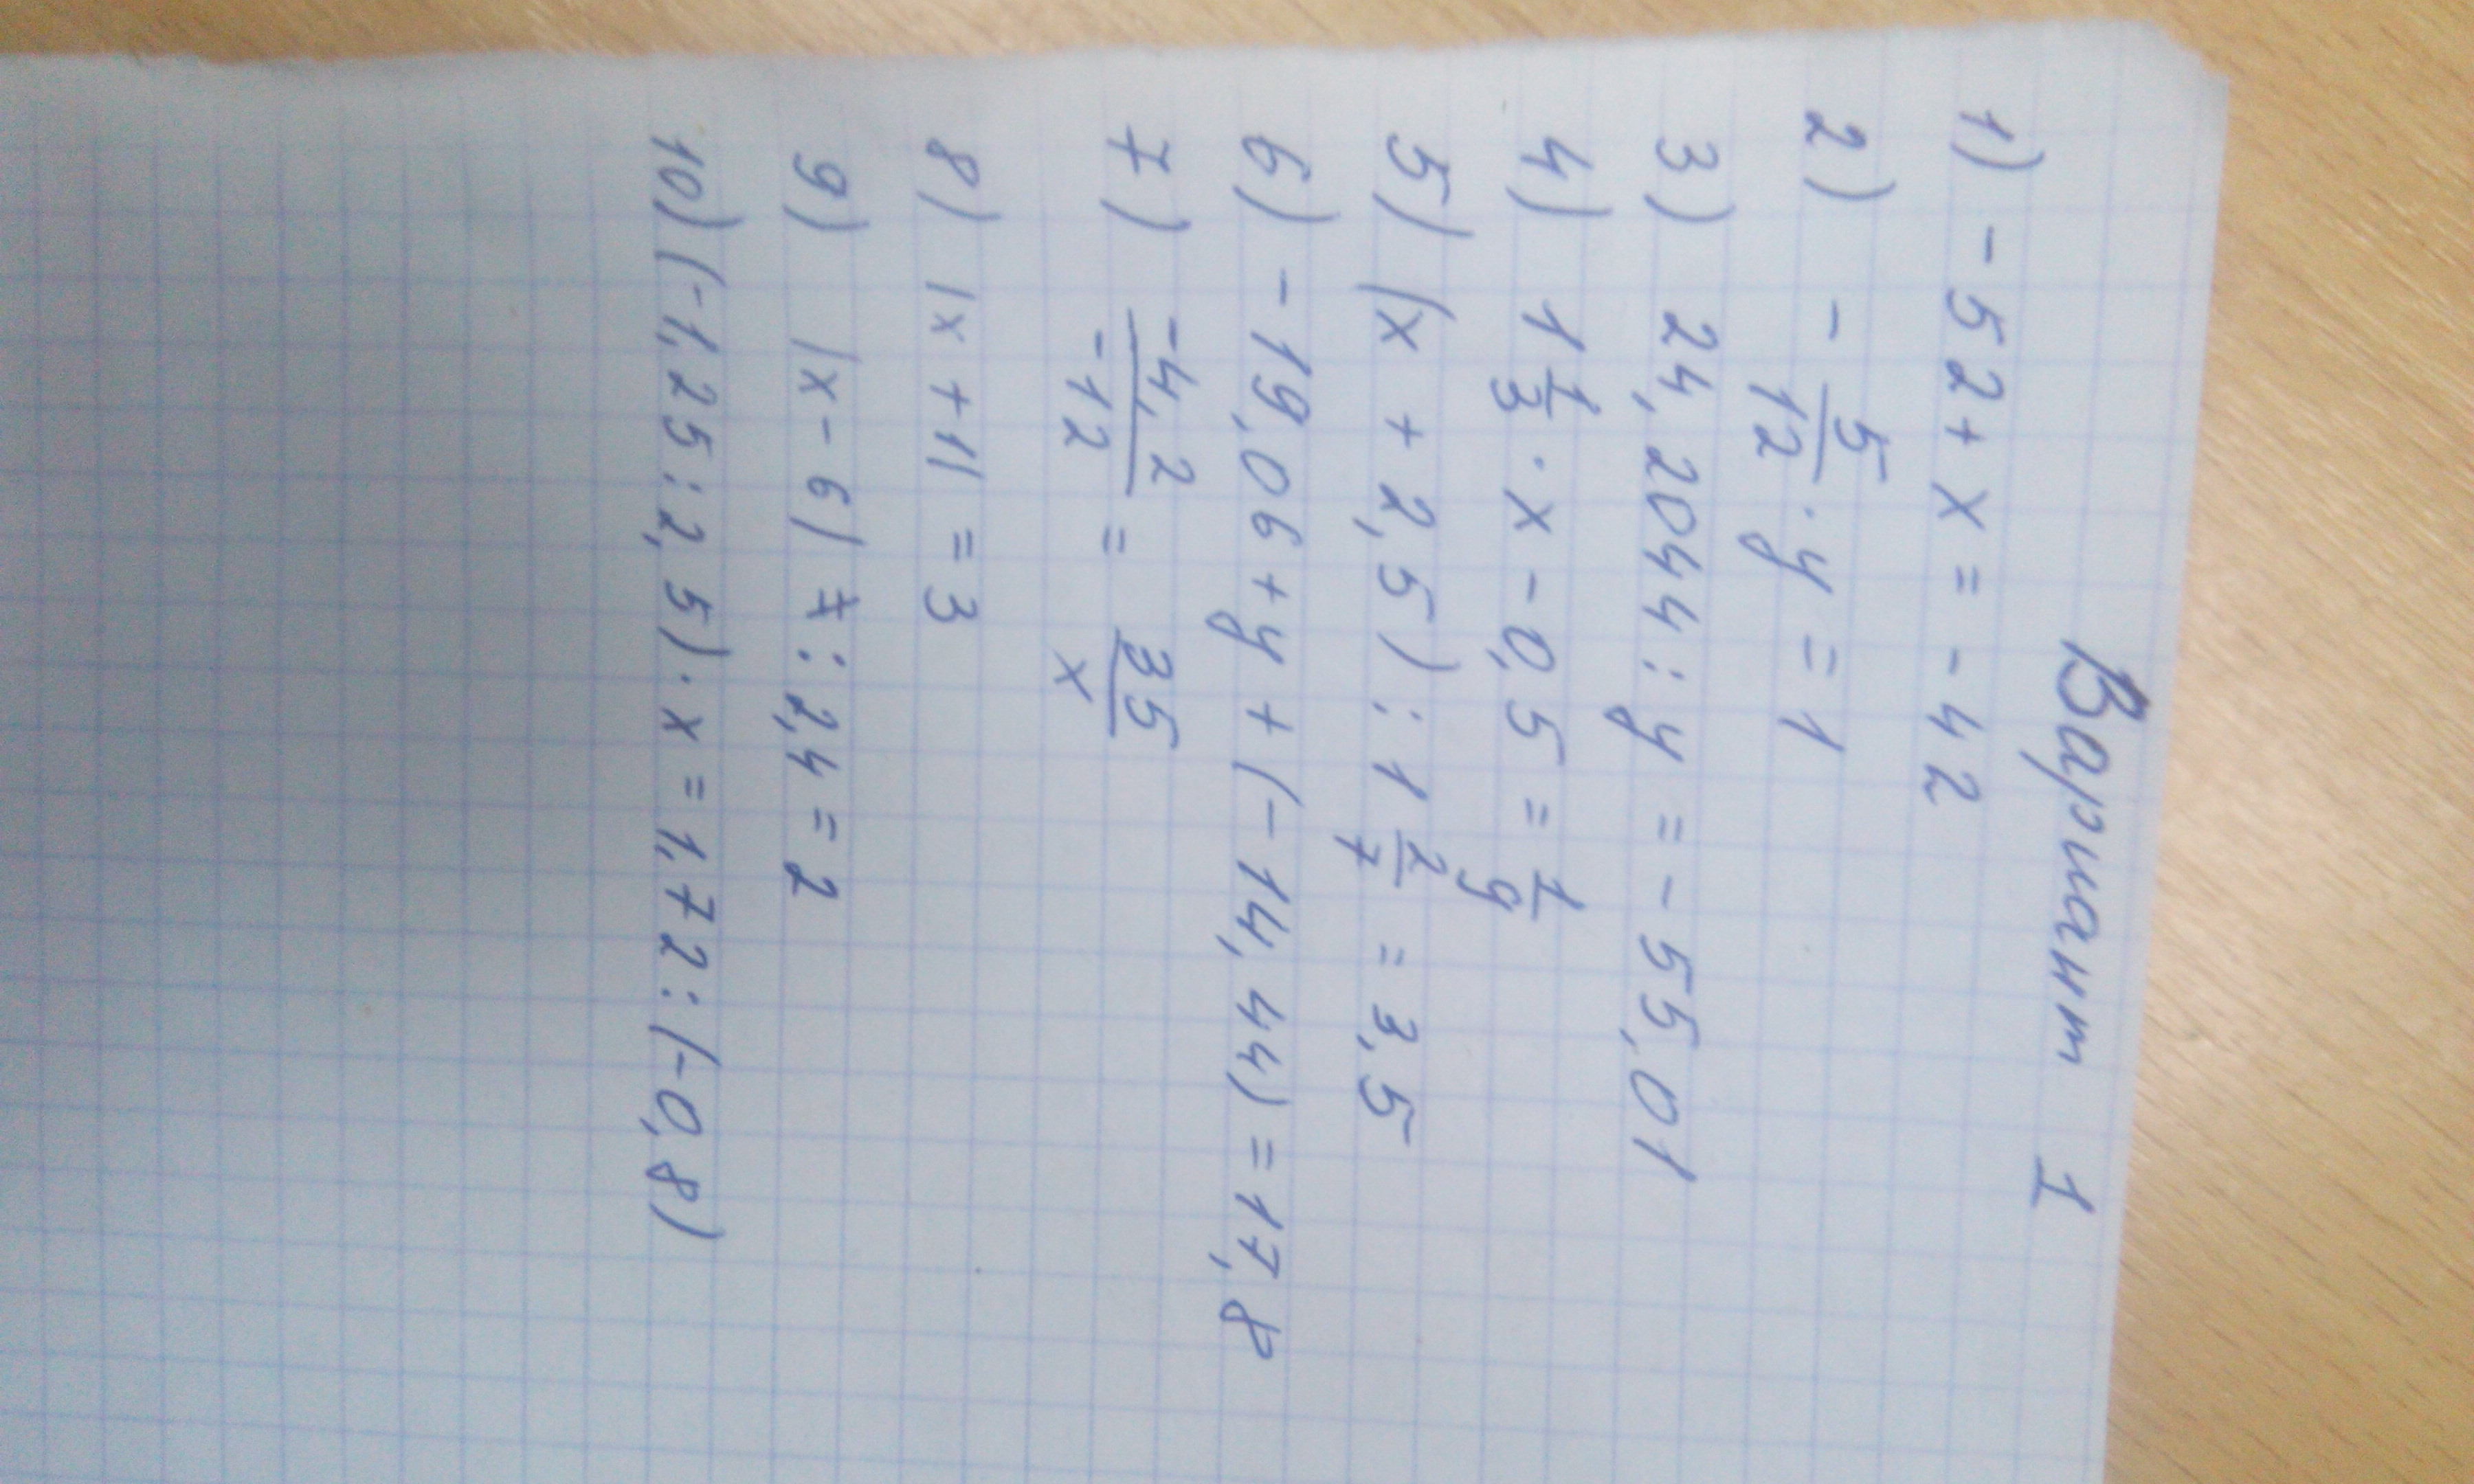 Вариант 1
1) - 52 + x = - 42
2) - 5/12 · y = 1
3) 24,2044 : y = - 55,01
4) 1 1/3 · x - 0,5 = 1/9
5) (x + 2,5) : 1 2/7 = 3,5
6) - 19,06 + y + (- 14,44) = 17,8
7) -4,2/-12 = 35/x
8) |x + 1| = 3
9) |x - 6| : 2,4 = 2
10) (-1,25 : 2,5) · x = 1,72 : (-0,8)